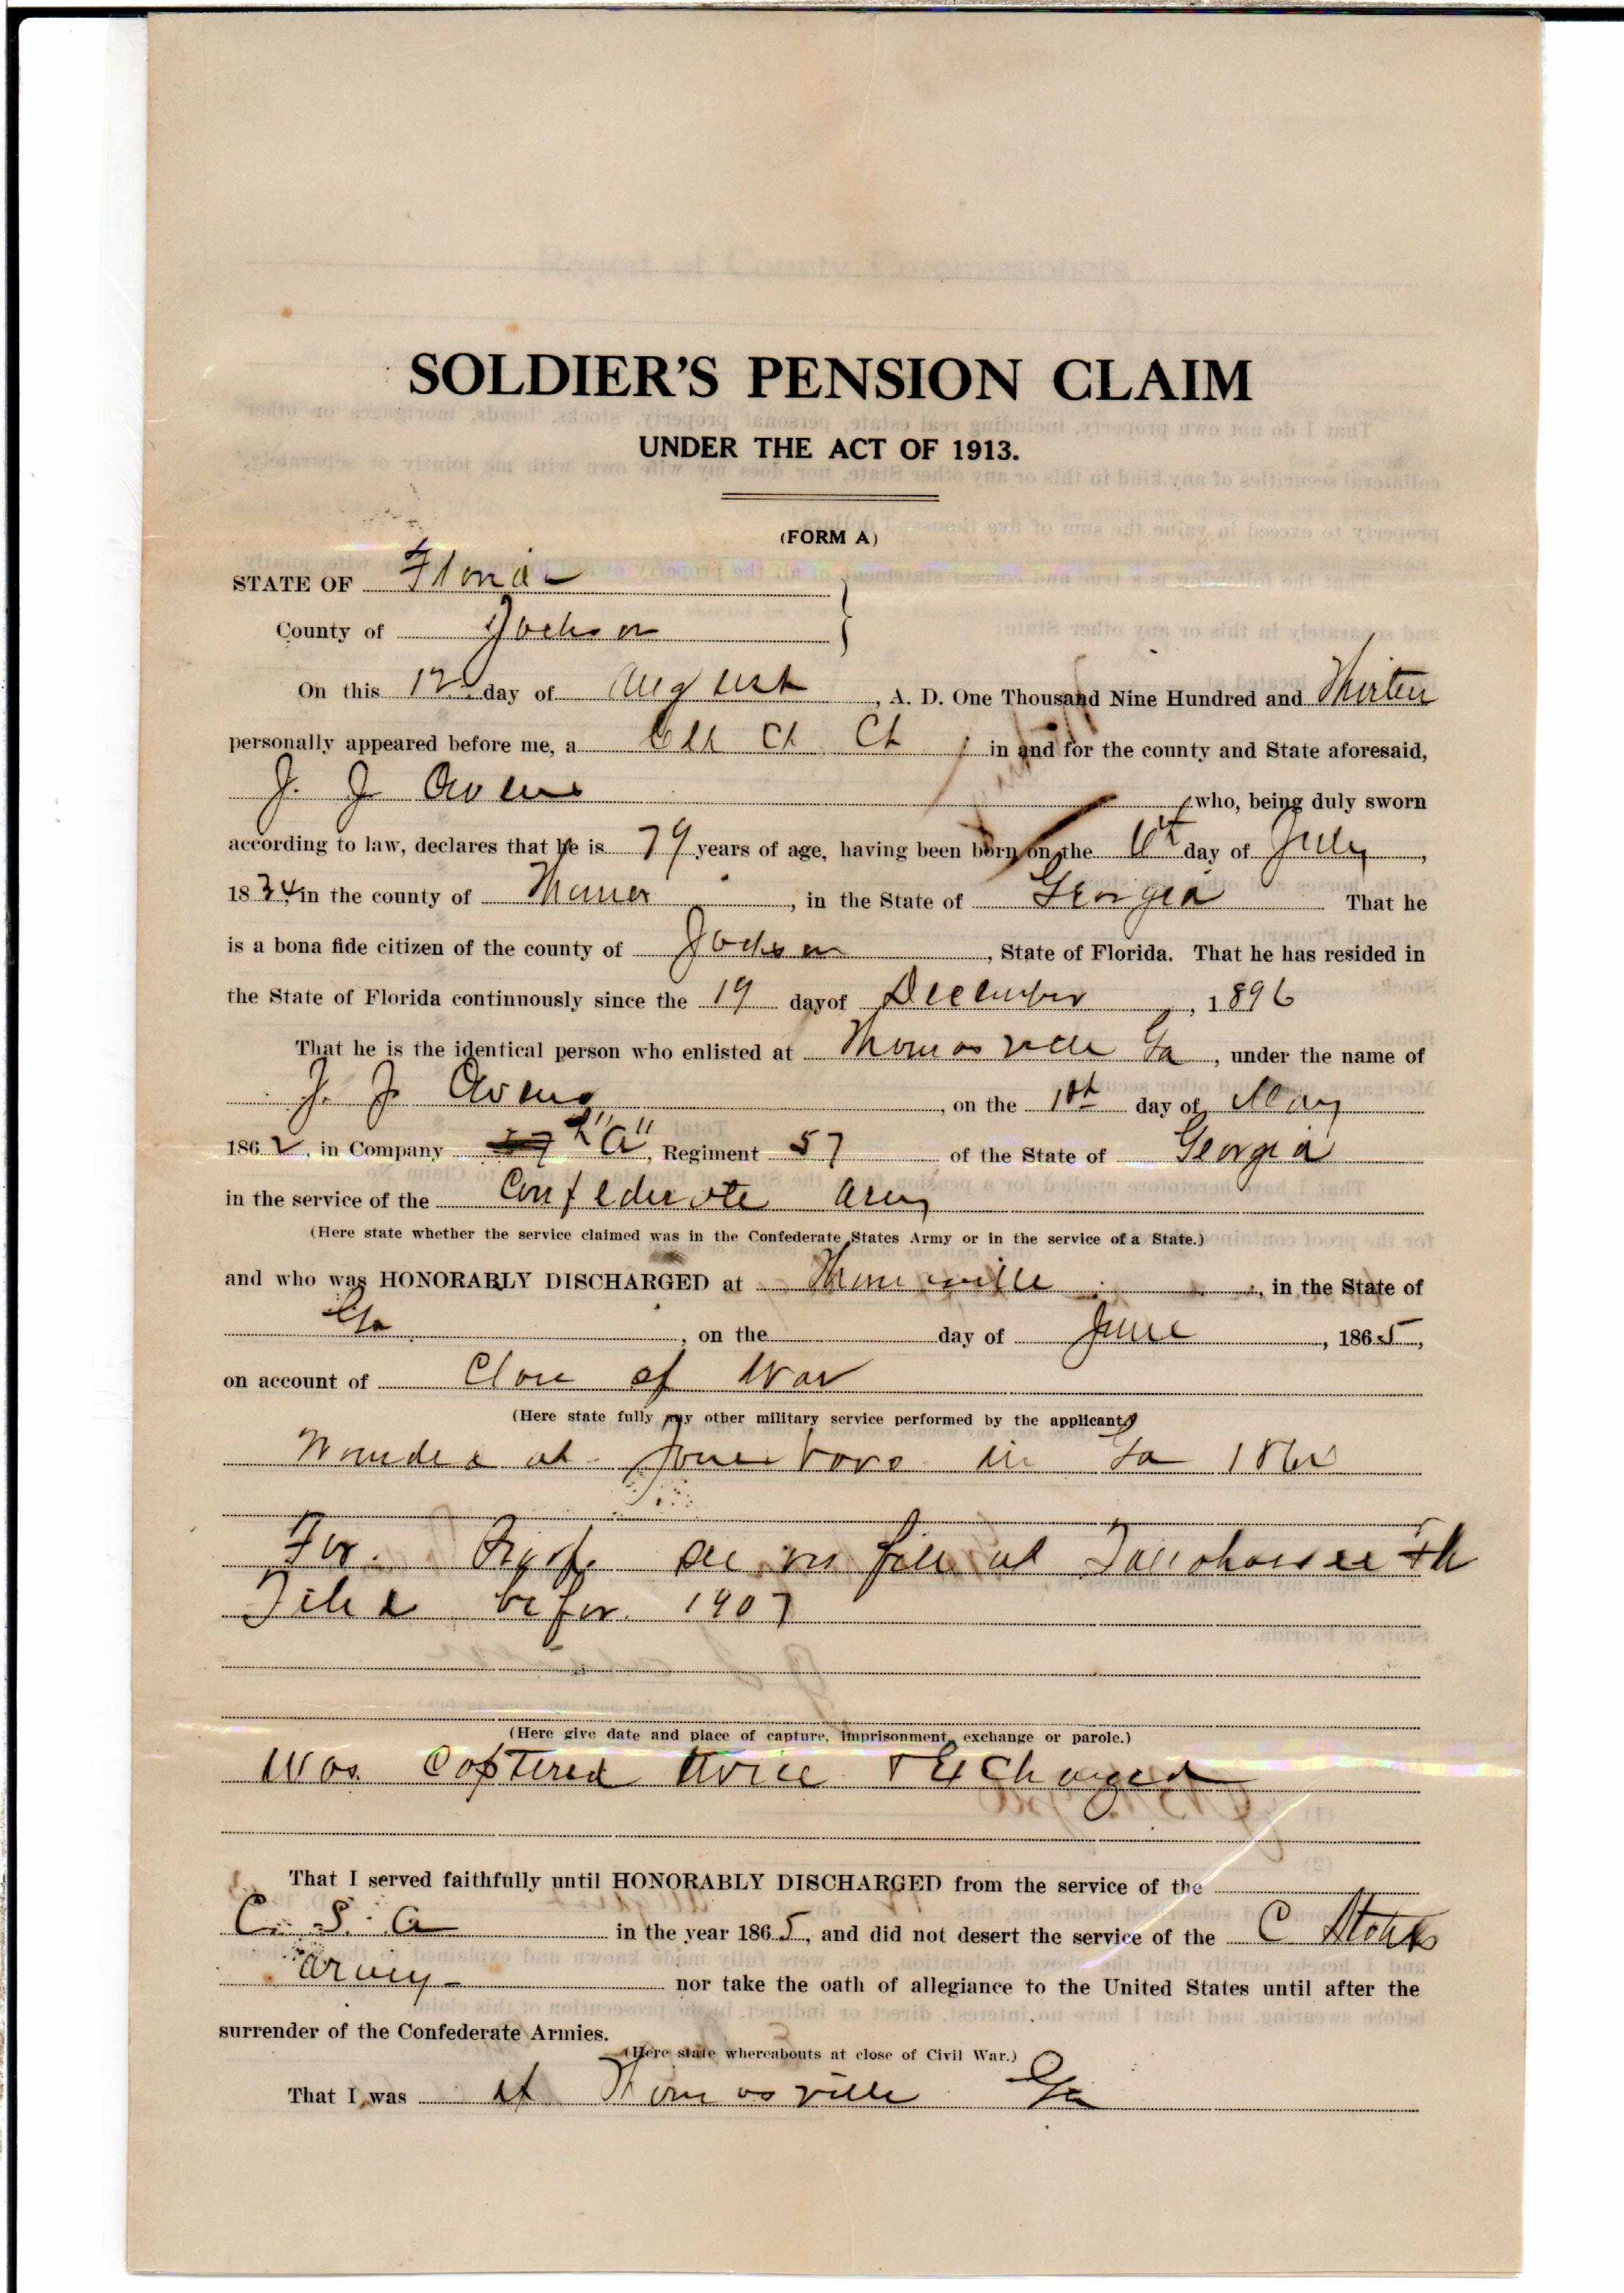 SOLDIER'S PENSION CLAIM
UNDER THE ACT OF 1913.
(FORM A)
STATE OF Florida
County of Jackson
On this 12 day of August, A. D. One Thousand Nine Hundred and Thirteen
personally appeared before me, a Clk Ct Ct, in and for the county and State aforesaid,
J. J. Owens who, being duly sworn
according to law, declares that he is 79 years of age, having been born on the day of July,
1834, in the county of, in the State of Georgia That he
is a bona fide citizen of the county of Jackson, State of Florida. That he has resided in
the State of Florida continuously since the 19 day of December, 1896
That he is the identical person who enlisted at Thomasville Ga, under the name of
J. J. Owens, on the day of May
1862, in Company "A", Regiment 57 of the State of Georgia
in the service of the Confederate Army
(Here state whether the service claimed was in the Confederate States Army or in the service of a State.)
and who was HONORABLY DISCHARGED at Thomasville, in the State of
Ga, on the day of June, 1865,
on account of Close of War
(Here state fully any other military service performed by the applicant)
Wounded at Jonesboro in Ga
For Proof see on file at Tallahassee Fla
Filed befor 1907
(Here give date and place of capture, imprisonment, exchange or parole.)
Was Coptured twice & Exchanged
That I served faithfully until HONORABLY DISCHARGED from the service of the
C. S. A in the year 1865, and did not desert the service of the C States
Army nor take the oath of allegiance to the United States until after the
surrender of the Confederate Armies.
(Here state whereabouts at close of Civil War.)
That I was at Thomasville Ga